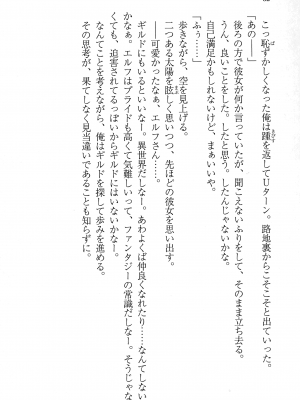 こっ恥ずかしくなった俺は踵を返してUターン。路地裏からこそこそと出ていった。
後ろの方で彼女が何か言っていたが、聞こえないふりをして、そのまま立ち去る。
ん、良いことをした。したと思う。したんじゃないかな。
自己満足かもしれないけど、まぁいいや。
「ふぅ……」
歩きながら、空を見上げる。
二つある太陽を眩しく思いつつ、先ほどの彼女を思い出す。
――可愛かったなぁ、エルフさん……。
ギルドにもいるといいなー。異世界だしなー。あわよくば仲良くなれたり……なんてしない
かなぁ。エルフはプライドも高くて気難しいって、ファンタジーの常識だしなー。そうじゃな
くても、迫害されてるっぽいからギルドにはいないかなー。
その思考が、果てしなく見当違いであることも知らずに。
かくして俺はギルドを探して歩みを進める。